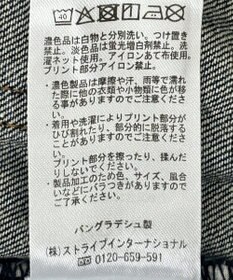 40
濃色品は白物と分別洗い。つけ置き
禁止。淡色品は蛍光増白剤禁止。洗
濯ネット使用。アイロンあて布使用。
プリント部分アイロン禁止。
・濃色製品は摩擦や汗、雨等で濡れ
た際に他の衣類や小物類に色が移
る事がありますのでご注意くださ
い。
・着用や洗濯によりプリント部分が
ひび割れたり、部分的に脱落する
ことがありますのでご注意くださ
い。
・プリント部分を擦ったり、揉んだ
りしないでください。
・製品加工のため色、サイズ、風合
いなどにバラつきがありますので
ご了承ください。
バングラデシュ製
(株)ストライプインターナショナル
☎ 0120-659-591